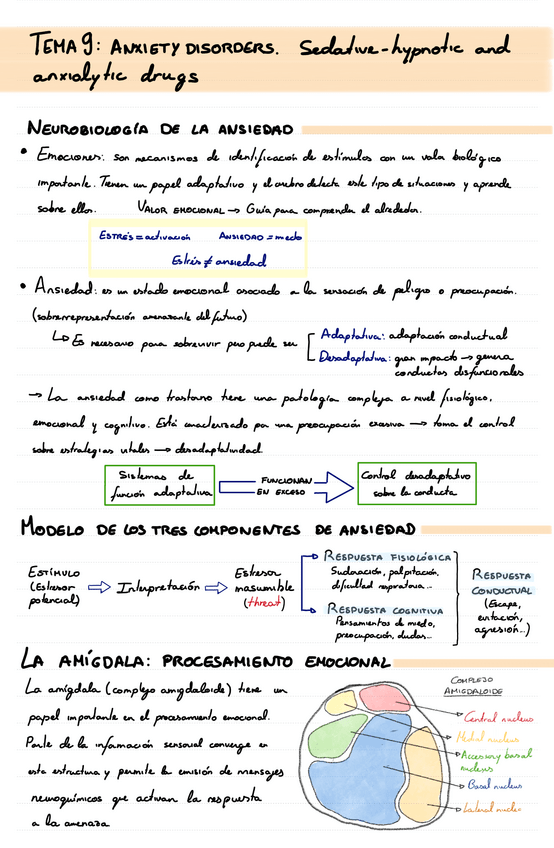 TEMA 9: ANXIETY DISORDERS. Sedative-hypnotic and
anxiolytic drugs
NEUROBIOLOGÍA DE LA ANSIEDAD
• Emociones: son mecanismos de identificación de estímulos con un valor biológico
importante. Tienen un papel adaptativo y el cerebro detecta este tipo de situaciones y aprende
sobre ellas. VALOR EMOCIONAL → Guía para comprender el alrededor.
ESTRÉS = activación ANSIEDAD = miedo
Estrés ≠ ansiedad
• Ansiedad: es un estado emocional asociado a la sensación de peligro o preocupación.
(sobrerrepresentación amenazante del futuro)
↳ Es necesario para sobrevivir pero puede ser
Adaptativa: adaptación conductual
Desadaptativa: gran impacto → genera
conductas disfuncionales
→ La ansiedad como trastorno tiene una patología compleja a nivel fisiológico,
emocional y cognitivo. Está caracterizado por una preocupación excesiva → toma el control
sobre estrategias vitales → desadaptatividad.
Sistemas de
función adaptativa
FUNCIONAN
EN EXCESO
Control desadaptativo
sobre la conducta
MODELO DE LOS TRES COMPONENTES DE ANSIEDAD
ESTÍMULO
(Estresor
potencial)
⇒ Interpretación ⇒
Estresor
inasumible
(threat)
RESPUESTA FISIOLÓGICA
Sudoración, palpitación,
dificultad respiratoria...
RESPUESTA COGNITIVA
Pensamientos de miedo,
preocupación, dudas...
RESPUESTA
CONDUCTUAL
(Escape,
evitación,
agresión...)
LA AMÍGDALA: PROCESAMIENTO EMOCIONAL
La amígdala (complejo amigdaloide) tiene un
papel importante en el procesamiento emocional.
Parte de la información sensorial converge en
esta estructura y permite la emisión de mensajes
neuroquímicos que activan la respuesta
a la amenaza
COMPLEJO
AMIGDALOIDE
Central nucleus
Medial nucleus
Accessory basal
nucleus
Basal nucleus
Lateral nucleo